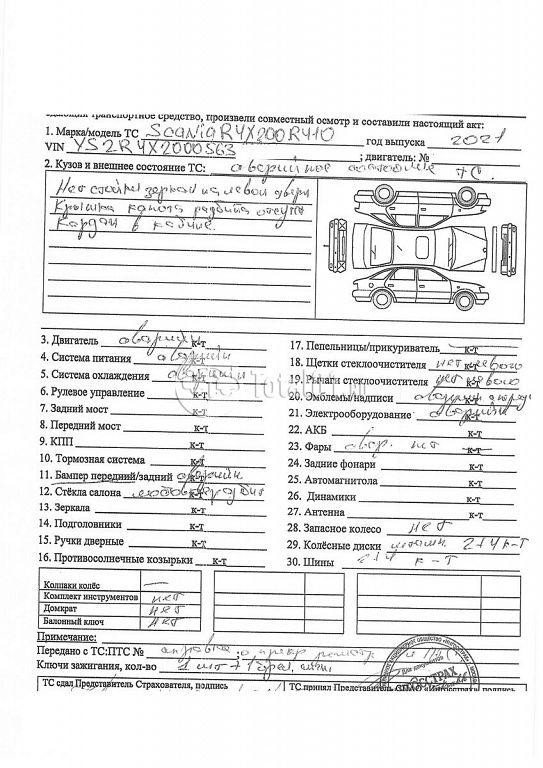 транспортное средство, произвели совместный осмотр и составили настоящий акт:
1. Марка/модель ТС Scania R4X200 R410
год выпуска 2021
VIN YS2R4X2000563 ; двигатель: №
2. Кузов и внешнее состояние ТС: аварийное состояние ТС.
Нет стойки зеркал на левой двери
Крышка капота разбита отсут
Кардан в кабине.
3. Двигатель аварийн к-т
4. Система питания аварийн к-т
5. Система охлаждения аварийн к-т
6. Рулевое управление к-т
7. Задний мост к-т
8. Передний мост к-т
9. КПП к-т
10. Тормозная система к-т
11. Бампер передний/задний аварийн к-т
12. Стёкла салона лобовое разбит к-т
13. Зеркала к-т
14. Подголовники к-т
15. Ручки дверные к-т
16. Противосолнечные козырьки к-т
17. Пепельницы/прикуриватель к-т
18. Щетки стеклоочистителя нет левого к-т
19. Рычаги стеклоочистителя нет левого к-т
20. Эмблемы/надписи к-т
21. Электрооборудование аварийн к-т
22. АКБ к-т
23. Фары авар. нет к-т
24. Задние фонари к-т
25. Автомагнитола к-т
26. Динамики к-т
27. Антенна к-т
28. Запасное колесо нет
29. Колёсные диски штамп. 2+4 к-т
30. Шины 2+4 к-т
Колпаки колёс —
Комплект инструментов нет
Домкрат нет
Балонный ключ нет
Примечание:
Передано с ТС:ПТС №
Ключи зажигания, кол-во 1 шт +
ТС сдал Представитель Страхователя, подпись
ТС принял Представитель СПАО «Ингосстрах», подпись